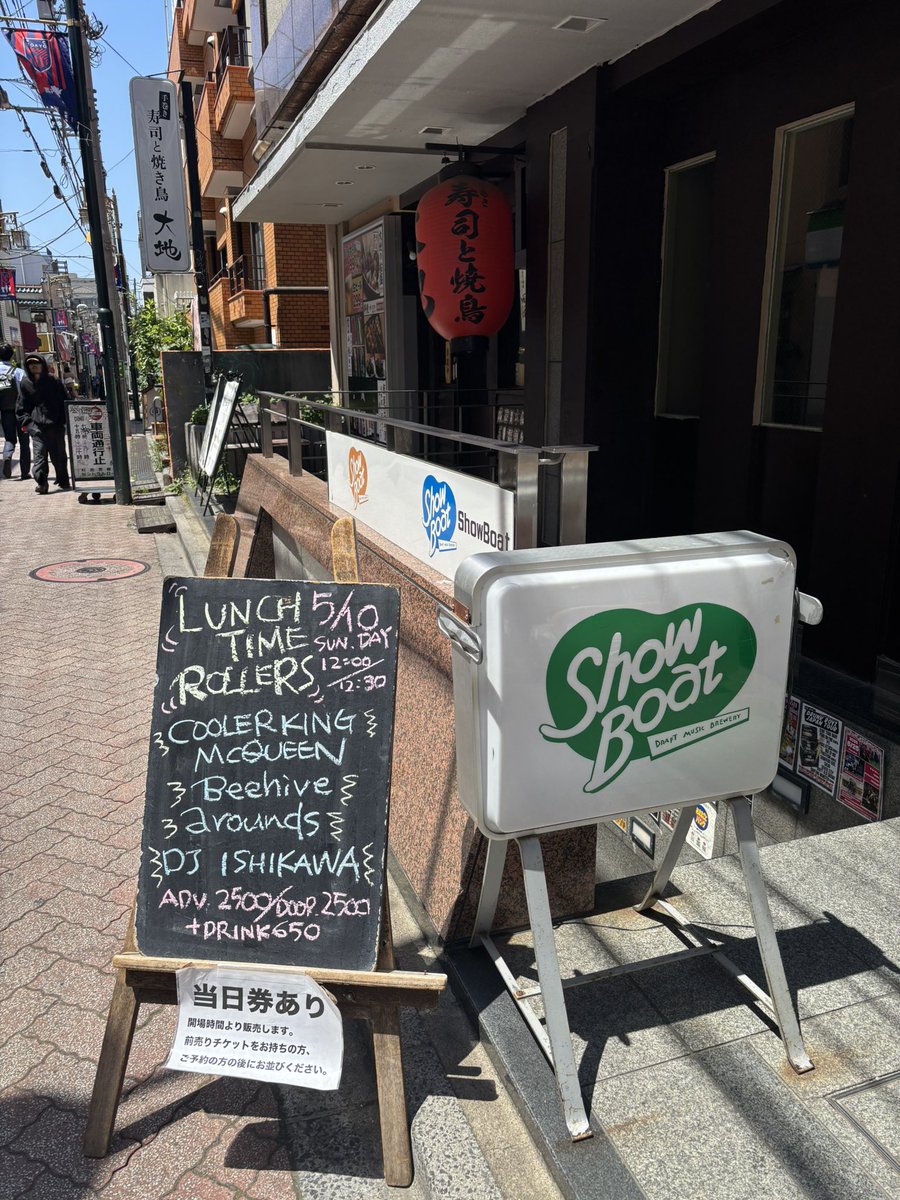 TOKYO
手巻き
寿司と焼き鳥
大地
寿司と焼鳥
車両通行止
Show
Boat
Show
Boat
ShowBoat
Show
Boat
DRAFT MUSIC BREWERY
LUNCH
TIME
ROLLERS
5/10
SUN.DAY
12:00/
12:30
COOLERKING
McQUEEN
Beehive
arounds
DJ ISHIKAWA
ADV.2500/DOOR.2500
+DRINK650
当日券あり
開場時間より販売します。
前売りチケットをお持ちの方、
ご予約の方の後にお並びください。